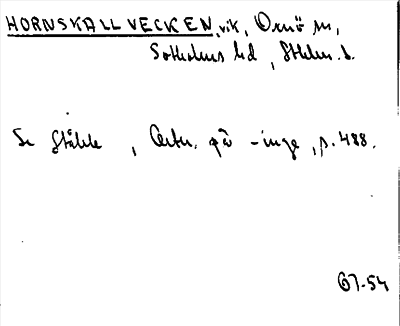 HORNSKALLVECKEN, vik, Ornö sn,
Sotholms hd, Sthlms l.
Se Ståhle, Ortn. på -inge, p. 488.
GT-54